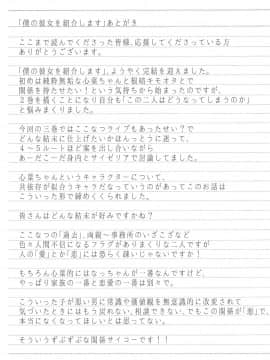 「僕の彼女を紹介します」あとがき
ここまで読んでくださった皆様、応援してくださっている方
ありがとうございます。
「僕の彼女を紹介します」、ようやく完結を迎えました。
初めは純粋無垢な心菜ちゃんと根暗キモオタとで
関係を持たせたい!という気持ちから始まったのですが、
2巻を描くことになり自分も「この二人はどうなってしまうのか」
と悩みまくりました。
今回の三巻ではここなつライブもあったせい?で
どんな結末に仕上げたいかほんっとうに迷って、
4~5ルートほど案を出し合いながら
あーだこーだ身内とサイゼリアで討論してました。
心菜ちゃんというキャラクターについて、
共依存が似合うキャラだなっていうのがあってこのお話は
こういった形で締めくくられました。
皆さんはどんな結末が好みですかね?
ここなつの「過去」、両親~事務所のいざこざなど
色々人間不信になるフラグがありまくりな二人ですが
人の「愛」とか「恋」には恐らく疎いじゃないですか!
もちろん心菜的にはなっちゃんが一番なんですけど、
やっぱり家族の一番と恋愛の一番は別々で。
こういった子が悪い男に常識や価値観を無意識的に改変されて
気づいたときにはもう戻れない、相談できない、でもこの関係が「悪」で、
本当になくなってほしいとは思ってない。
そういうずぶずぶな関係サイコーです!!